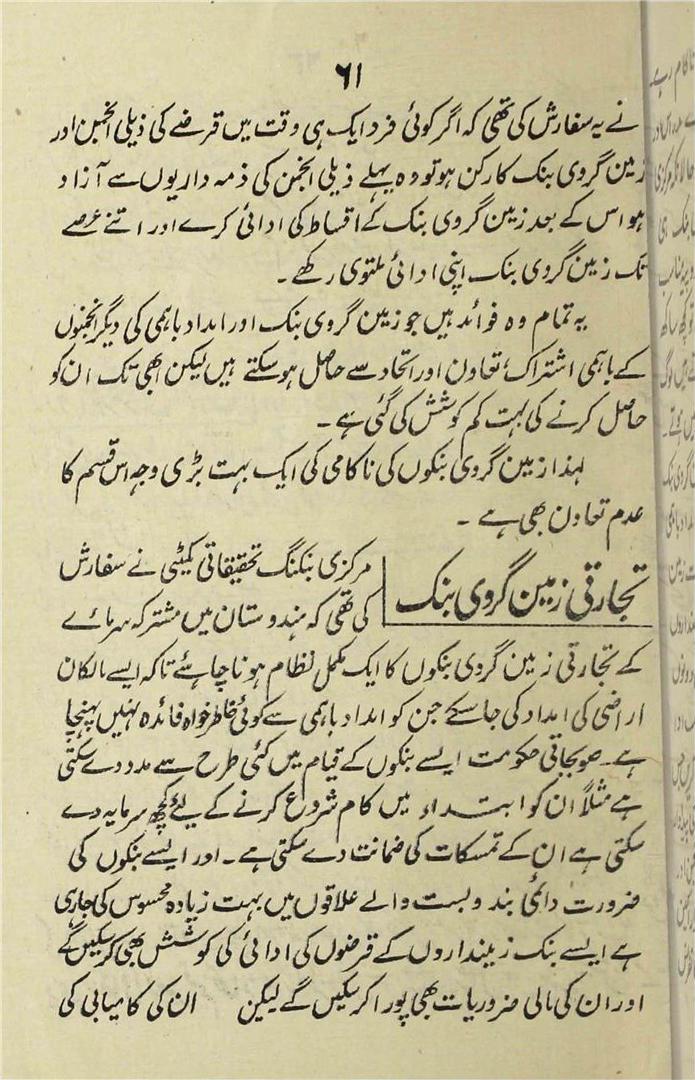 ۶۱
نے یہ سفارش کی تھی کہ اگر کوئی فرد ایک ہی وقت میں قرضے کی ذیلی انجمن اور
زمین گروی بنک کا رکن ہو تو وہ پہلے ذیلی انجمن کی ذمہ داریوں سے آزاد
ہو اس کے بعد زمین گروی بنک کے اقساط کی ادائی کرے اور اتنے عرصے
تک زمین گروی بنک اپنی ادائی ملتوی رکھے ۔
یہ تمام وہ فوائد ہیں جو زمین گروی بنک اور امداد باہمی کی دیگر انجمنوں
کے باہمی اشتراک، تعاون اور اتحاد سے حاصل ہو سکتے ہیں لیکن ابھی تک ان کو
حاصل کرنے کی بہت کم کوشش کی گئی ہے ۔
لہذا زمین گروی بنکوں کی ناکامی کی ایک بہت بڑی وجہ اس قسم کا
عدم تعاون بھی ہے ۔
تجارتی زمین گروی بنک
مرکزی بنکنگ تحقیقاتی کمیٹی نے سفارش
کی تھی کہ ہندوستان میں مشترکہ سرمائے
کے تجارتی زمین گروی بنکوں کا ایک مکمل نظام ہونا چاہئے تاکہ ایسے مالکان
اراضی کی امداد کی جا سکے جن کو امداد باہمی سے کوئی خاطر خواہ فائدہ نہیں پہنچا
ہے۔ صوبجاتی حکومت ایسے بنکوں کے قیام میں کئی طرح سے مدد دے سکتی
ہے مثلاً ان کو ابتداء میں کام شروع کرنے کے لئے کچھ سرمایہ دے
سکتی ہے ان کے تمسکات کی ضمانت دے سکتی ہے۔ اور ایسے بنکوں کی
ضرورت دائمی بند وبست والے علاقوں میں بہت زیادہ محسوس کی جا رہی
ہے ایسے بنک زمینداروں کے قرضوں کی ادائی کی کوشش بھی کر سکیں گے
اور ان کی مالی ضروریات بھی پورا کر سکیں گے لیکن ان کی کامیابی کی